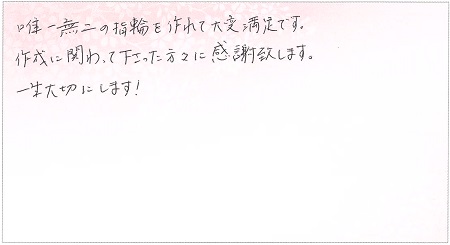 唯一無二の指輪を作れて大変満足です。
作成に関わって下さった方々に感謝致します。
一生大切にします!